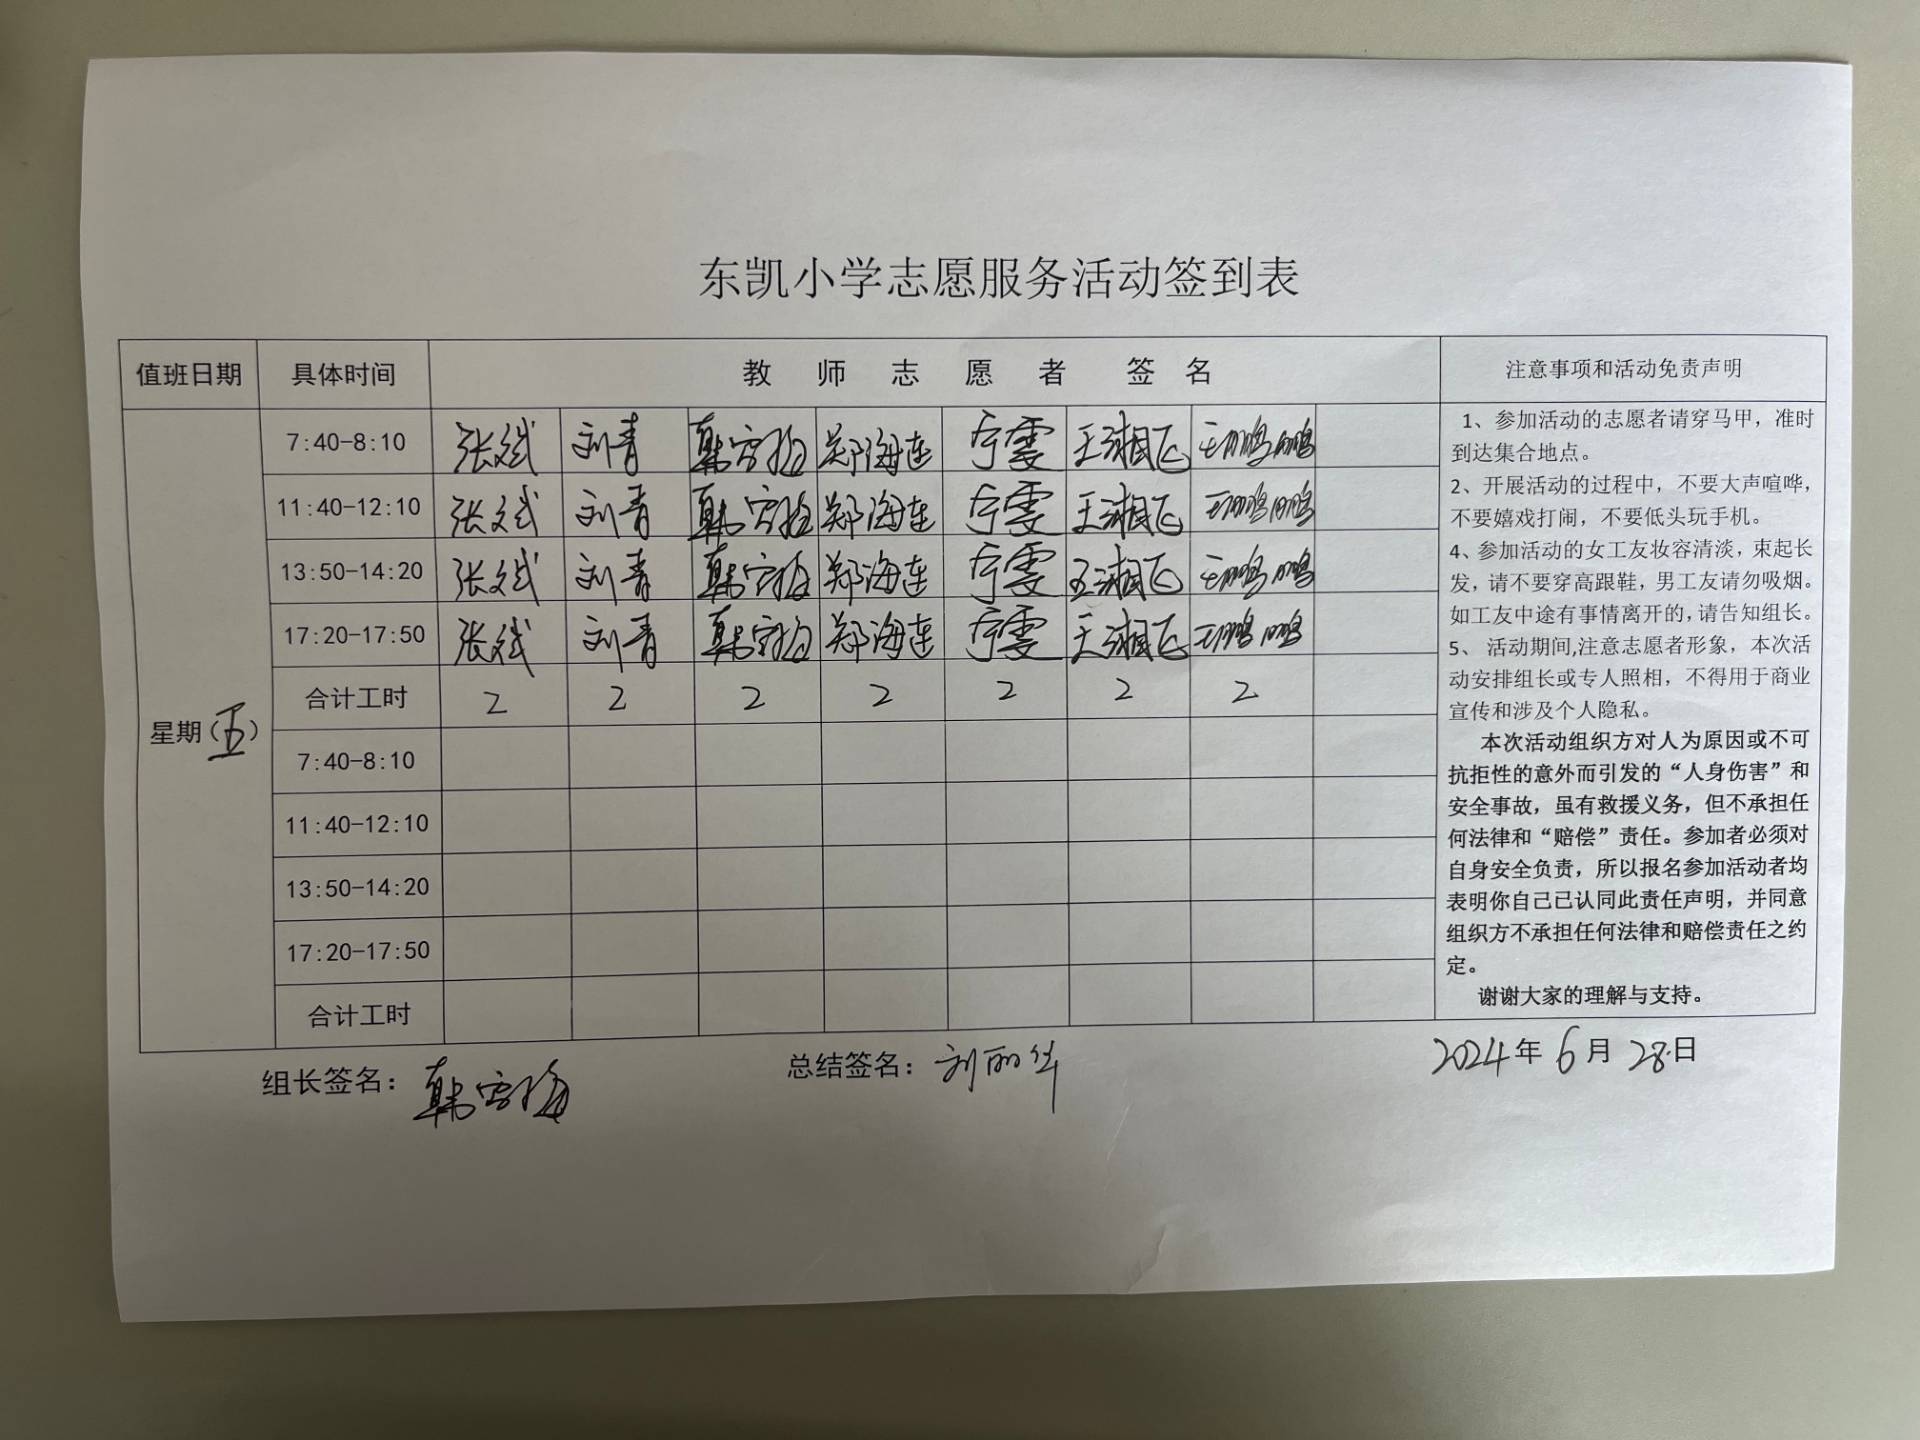 东凯小学志愿服务活动签到表
值班日期 具体时间 教 师 志 愿 者 签 名 注意事项和活动免责声明
星期(五)
7:40-8:10 张斌 刘青 韩雪梅 郑海莲 宁雯 王湘飞 王鹏鹏
11:40-12:10 张斌 刘青 韩雪梅 郑海莲 宁雯 王湘飞 王鹏鹏
13:50-14:20 张斌 刘青 韩雪梅 郑海莲 宁雯 王湘飞 王鹏鹏
17:20-17:50 张斌 刘青 韩雪梅 郑海莲 宁雯 王湘飞 王鹏鹏
合计工时 2 2 2 2 2 2 2
7:40-8:10
11:40-12:10
13:50-14:20
17:20-17:50
合计工时
1、参加活动的志愿者请穿马甲，准时
到达集合地点。
2、开展活动的过程中，不要大声喧哗，
不要嬉戏打闹，不要低头玩手机。
4、参加活动的女工友妆容清淡，束起长
发，请不要穿高跟鞋，男工友请勿吸烟。
如工友中途有事情离开的，请告知组长。
5、 活动期间,注意志愿者形象，本次活
动安排组长或专人照相，不得用于商业
宣传和涉及个人隐私。
本次活动组织方对人为原因或不可
抗拒性的意外而引发的“人身伤害”和
安全事故，虽有救援义务，但不承担任
何法律和“赔偿”责任。参加者必须对
自身安全负责，所以报名参加活动者均
表明你自己已认同此责任声明，并同意
组织方不承担任何法律和赔偿责任之约
定。
谢谢大家的理解与支持。
组长签名：韩雪梅 总结签名：刘丽华 2024年6月28日